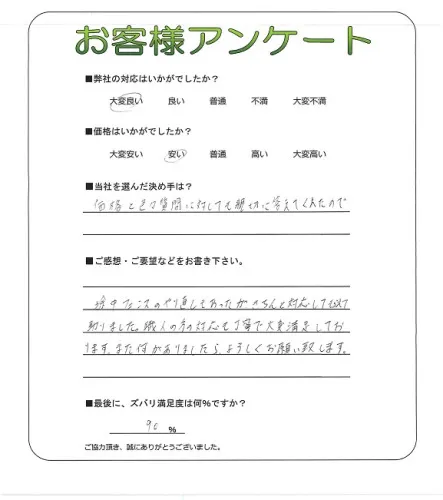 お客様アンケート
■弊社の対応はいかがでしたか？
大変良い 良い 普通 不満 大変不満
■価格はいかがでしたか？
大変安い 安い 普通 高い 大変高い
■当社を選んだ決め手は？
価格と色々質問に対しても親切に答えてくれたので
■ご感想・ご要望などをお書き下さい。
のやり直しもあったがきちんと対応して
助りました。職人の方の対応も丁寧で大変満足してお
ります。また何かありましたら、よろしくお願い致します。
■最後に、ズバリ満足度は何%ですか？
90 %
ご協力頂き、誠にありがとうございました。